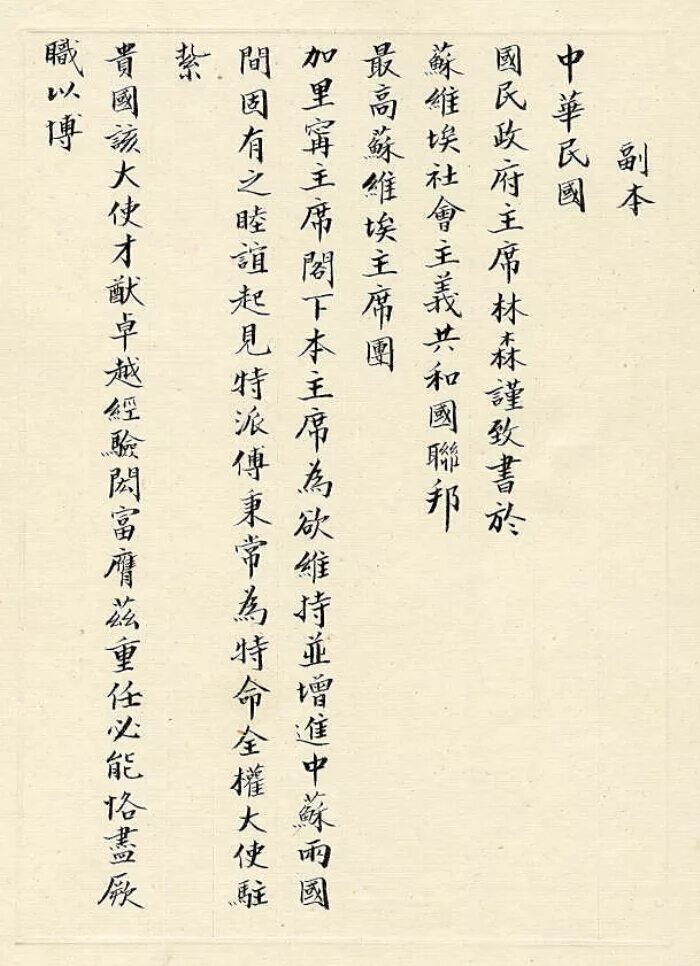 副本
中華民國
國民政府主席林森謹致書於
蘇維埃社會主義共和國聯邦
最高蘇維埃主席團
加里甯主席閣下本主席為欲維持並增進中蘇兩國
間固有之睦誼起見特派傅秉常為特命全權大使駐
紮
貴國該大使才猷卓越經驗閎富膺茲重任必能恪盡厥
職以博